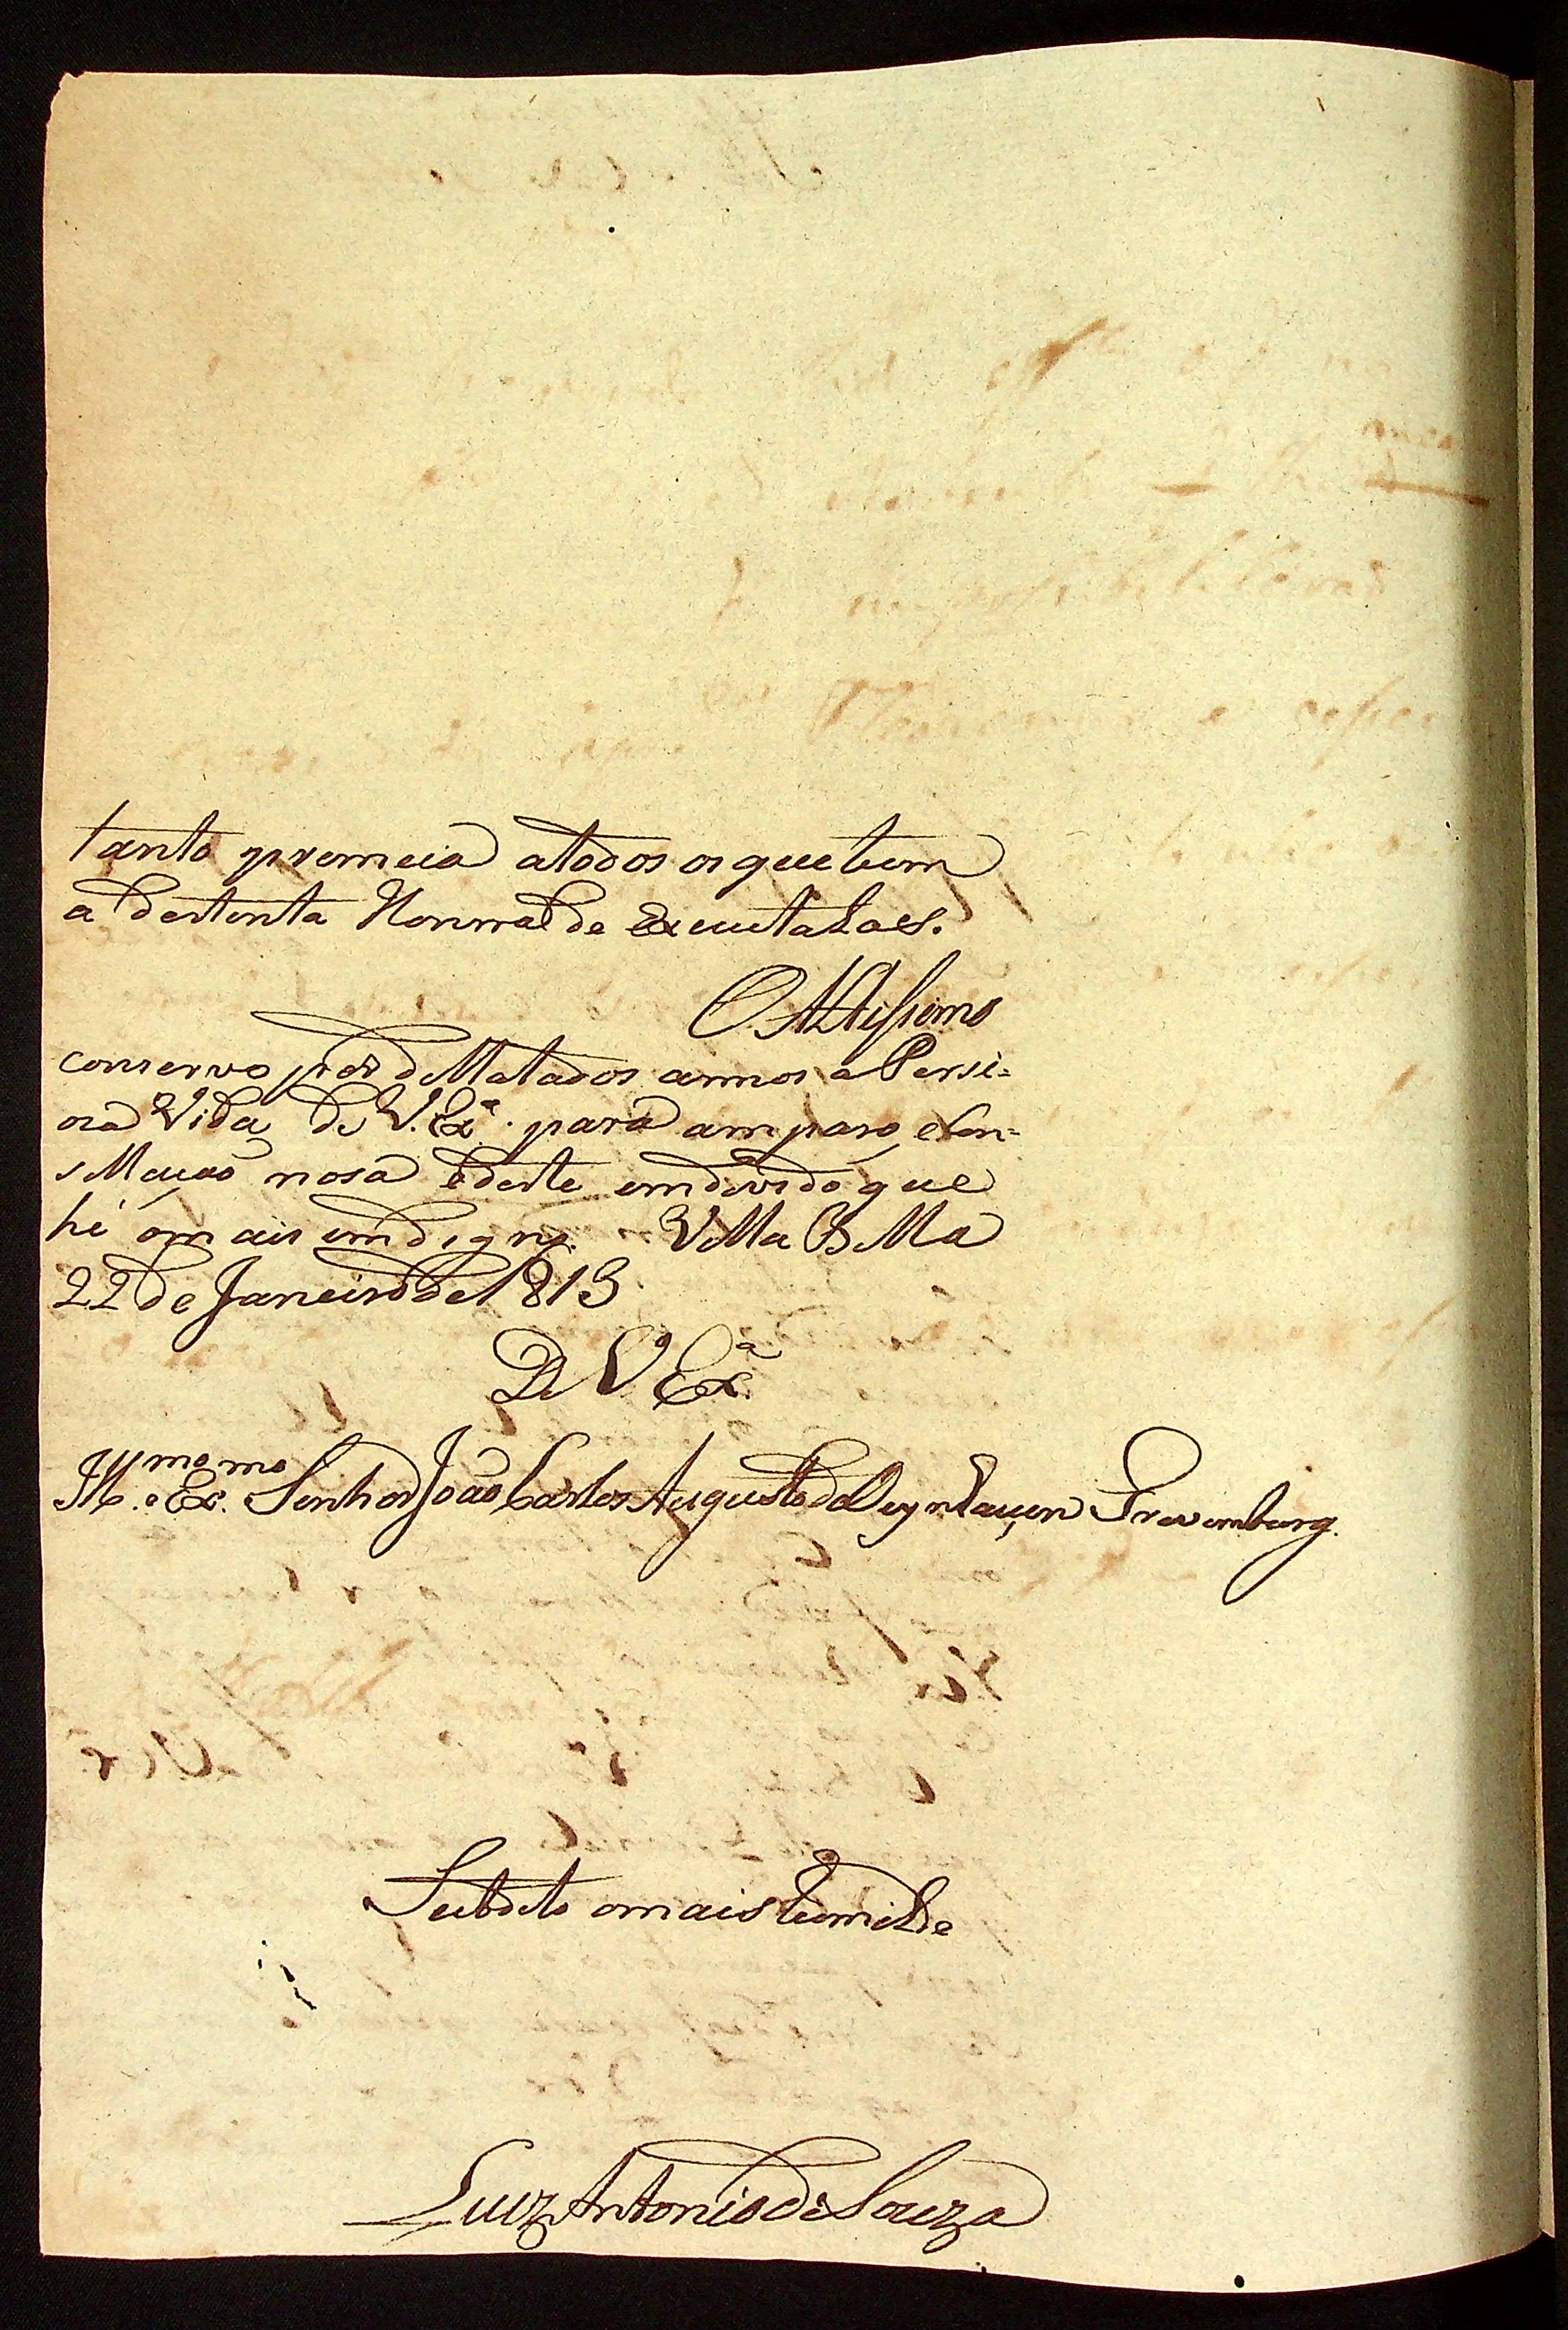 tanto premeia atodos os que tem
a destenta Honrra de executalaes.
O Altissimo
conserve por delatados annos a Persi=
oza Vida de V. Exª. para amparo, e Con=
sullaçaõ nosa e deste emdevido que
hé o mais emdigno. Villa Bella
22 de Janeiro de 1813
De V Exª
Illmo. e Exmo. Senhor Joaõ Carlos Augusto de Oeynhauçen Grevemburg.
Subdito o mais humilde
Luiz Antonio de Souza